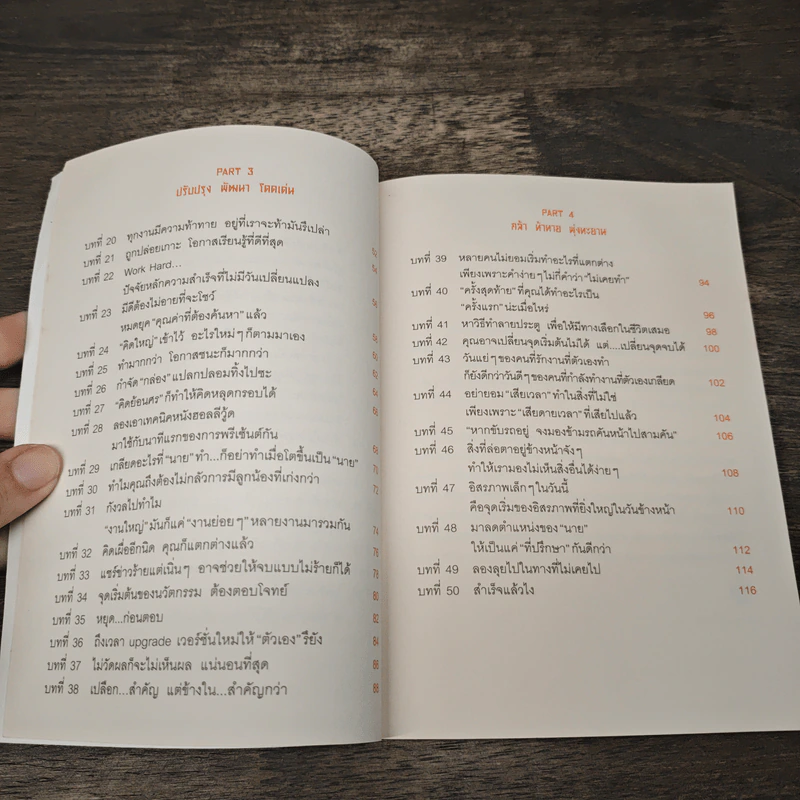 PART 3
ปรับปรุง พัฒนา โดดเด่น
บทที่ 20 ทุกงานมีความท้าทาย อยู่ที่เราจะท้ามันรึเปล่า 52
บทที่ 21 ถูกปล่อยเกาะ โอกาสเรียนรู้ที่ดีที่สุด 54
บทที่ 22 Work Hard...
ปัจจัยหลักความสำเร็จที่ไม่มีวันเปลี่ยนแปลง 56
บทที่ 23 มีดีต้องไม่อายที่จะโชว์
หมดยุค "คุณค่าที่ต้องค้นหา" แล้ว 58
บทที่ 24 "คิดใหญ่" เข้าไว้ อะไรใหม่ๆ ก็ตามมาเอง 60
บทที่ 25 ทำมากกว่า โอกาสชนะก็มากกว่า 62
บทที่ 26 กำจัด "กล่อง" แปลกปลอมทิ้งไปซะ 64
บทที่ 27 "คิดย้อนศร" ก็ทำให้คิดหลุดกรอบได้ 66
บทที่ 28 ลองเอาเทคนิคหนังฮอลลีวู้ด
มาใช้กับนาทีแรกของการพรีเซ้นต์กัน 68
บทที่ 29 เกลียดอะไรที่ "นาย" ทำ...ก็อย่าทำเมื่อโตขึ้นเป็น "นาย" 70
บทที่ 30 ทำไมคุณถึงต้องไม่กลัวการมีลูกน้องที่เก่งกว่า 72
บทที่ 31 กังวลไปทำไม
"งานใหญ่" มันก็แค่ "งานย่อยๆ" หลายงานมารวมกัน 74
บทที่ 32 คิดเผื่ออีกนิด คุณก็แตกต่างแล้ว 76
บทที่ 33 แชร์ข่าวร้ายแต่เนิ่นๆ อาจช่วยให้จบแบบไม่ร้ายก็ได้ 78
บทที่ 34 จุดเริ่มต้นของนวัตกรรม ต้องตอบโจทย์ 80
บทที่ 35 หยุด...ก่อนตอบ 82
บทที่ 36 ถึงเวลา upgrade เวอร์ชั่นใหม่ให้ "ตัวเอง" รึยัง 84
บทที่ 37 ไม่วัดผลก็จะไม่เห็นผล แน่นอนที่สุด 86
บทที่ 38 เปลือก...สำคัญ แต่ข้างใน...สำคัญกว่า 88
PART 4
กล้า ท้าทาย มุ่งทะยาน
บทที่ 39 หลายคนไม่ยอมเริ่มทำอะไรที่แตกต่าง
เพียงเพราะคำง่ายๆ ไม่กี่คำว่า "ไม่เคยทำ" 94
บทที่ 40 "ครั้งสุดท้าย" ที่คุณได้ทำอะไรเป็น
"ครั้งแรก" น่ะเมื่อไหร่ 96
บทที่ 41 หาวิธีทำลายประตู เพื่อให้มีทางเลือกในชีวิตเสมอ 98
บทที่ 42 คุณอาจเปลี่ยนจุดเริ่มต้นไม่ได้ แต่....เปลี่ยนจุดจบได้ 100
บทที่ 43 วันแย่ๆ ของคนที่รักงานที่ตัวเองทำ
ก็ยังดีกว่าวันดีๆ ของคนที่กำลังทำงานที่ตัวเองเกลียด 102
บทที่ 44 อย่ายอม "เสียเวลา" ทำในสิ่งที่ไม่ใช่
เพียงเพราะ "เสียดายเวลา" ที่เสียไปแล้ว 104
บทที่ 45 "หากขับรถอยู่ จงมองข้ามรถคันหน้าไปสามคัน" 106
บทที่ 46 สิ่งที่ล่อตาอยู่ข้างหน้าจังๆ
ทำให้เรามองไม่เห็นสิ่งอื่นได้ง่ายๆ 108
บทที่ 47 อิสรภาพเล็กๆ ในวันนี้
คือจุดเริ่มของอิสรภาพที่ยิ่งใหญ่ในวันข้างหน้า 110
บทที่ 48 มาลดตำแหน่งของ "นาย"
ให้เป็นแค่ "ที่ปรึกษา" กันดีกว่า 112
บทที่ 49 ลองลุยไปในทางที่ไม่เคยไป 114
บทที่ 50 สำเร็จแล้วไง 116